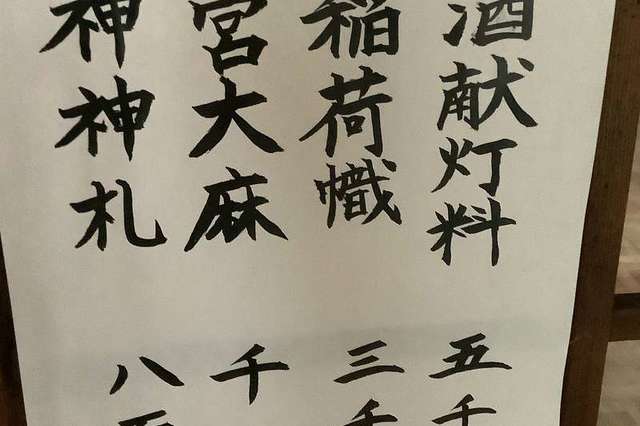 酒献灯料 五千
稲荷幟 三千
宮大麻 千
神神札 八百